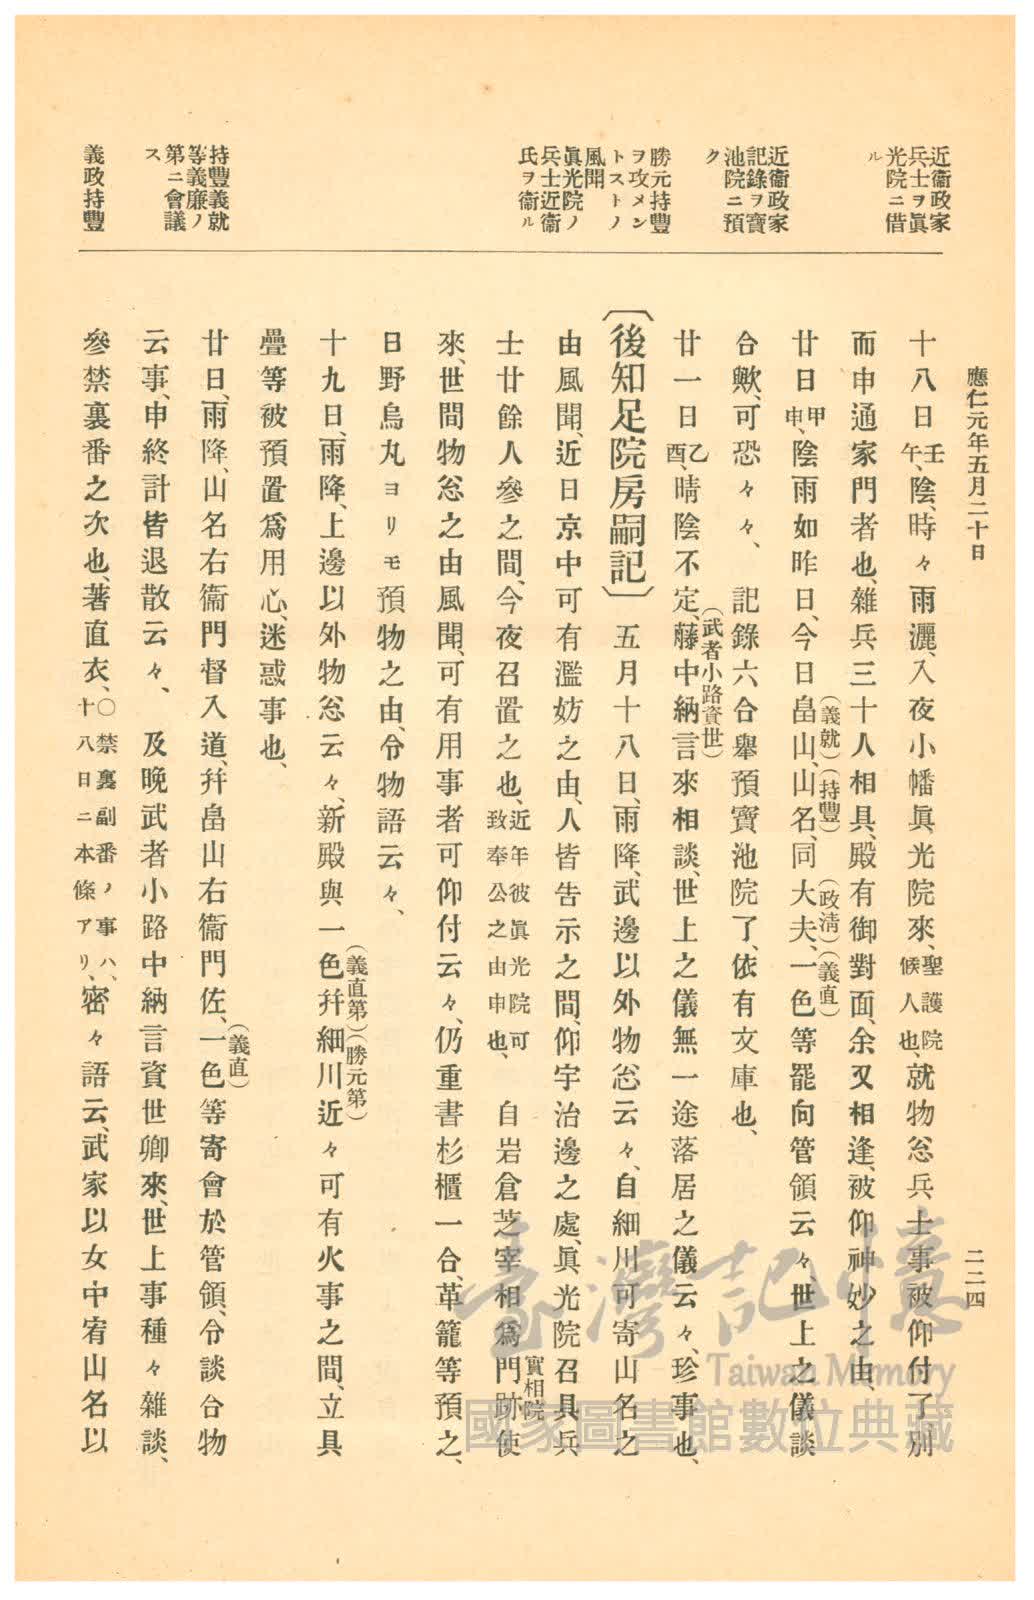 應仁元年五月二十日
二二四
近衞政家
兵士ヲ眞
光院ニ借
ル
近衞政家
記錄ヲ寶
池院ニ預
ク
勝元持豐
ヲ攻メン
トストノ
風聞
眞光院ノ
兵士近衞
氏ヲ衞ル
持豐義就
等義廉ノ
第ニ會議
ス
義政持豐
十八日壬午、陰、時々雨灑、入夜小幡眞光院來、聖護院候人也、就物忩兵士事被仰付了、別
而申通家門者也、雜兵三十人相具、殿有御對面、余又相逢、被仰神妙之由、
廿日甲申、陰雨如昨日、今日畠山(義就)、山名(持豐)、同大夫(政淸)、一色(義直)等罷向管領云々、世上之儀談
合歟、可恐々々、記錄六合擧預寶池院了、依有文庫也、
廿一日乙酉、晴陰不定、藤中納言(武者小路資世)來相談、世上之儀無一途落居之儀云々、珍事也、
〔後知足院房嗣記〕五月十八日、雨降、武邊以外物忩云々、自細川可寄山名之
由風聞、近日京中可有濫妨之由、人皆告示之間、仰宇治邊之處、眞光院召具兵
士廿餘人參之間、今夜召置之也、近年彼眞光院可致奉公之由申也、自岩倉芝宰相爲門跡實相院使
來、世間物忩之由風聞、可有用事者可仰付云々、仍重書杉櫃一合、革籠等預之、
日野烏丸ヨリモ預物之由、令物語云々、
十九日、雨降、上邊以外物忩云々、新殿與一色(義直第)幷細川(勝元第)近々可有火事之間、立具
疊等被預置爲用心、迷惑事也、
廿日、雨降、山名右衞門督入道、幷畠山右衞門佐、一色(義直)等寄會於管領、令談合物
云事、申終計皆退散云々、及晩武者小路中納言資世卿來、世上事種々雜談、
參禁裏番之次也、著直衣、〇禁裏副番ノ事ハ、十八日ニ本條アリ、密々語云、武家以女中宥山名以
臺灣記憶
Taiwan Memory
國家圖書館數位典藏